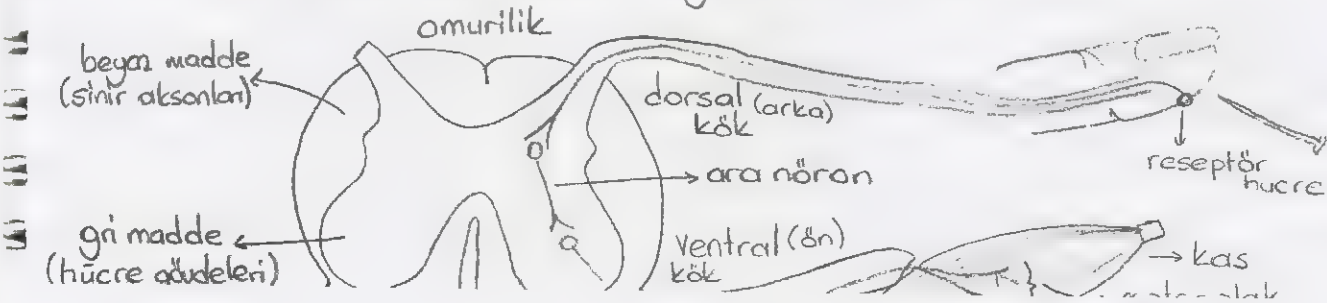 omurilik
beyaz madde
(sinir aksonları)
dorsal (arka)
kök
reseptör
hücre
ara nöron
gri madde
(hücre gövdeleri)
ventral (ön)
kök
kas